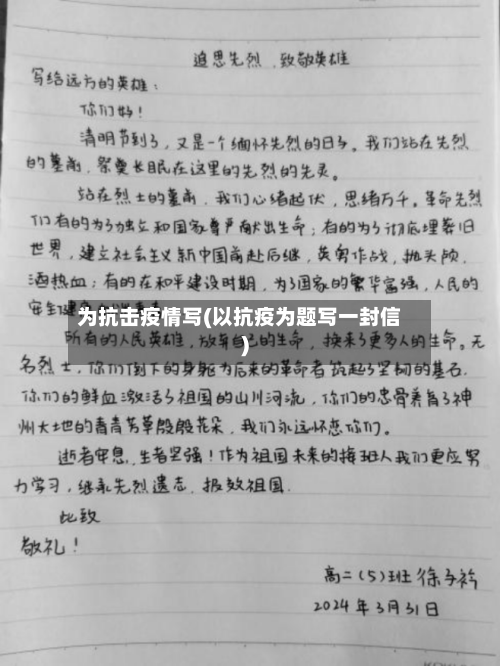 追思先烈，致敬英雄
写给远方的英雄：
你们好！
清明节到了，又是一个缅怀先烈的日子。我们站在先烈
的墓前，祭奠长眠在这里的先烈的先灵。
站在烈士的墓前，我们心绪起伏，思绪万千。革命先烈
们有的为了独立和国家尊严献出生命；有的为了彻底埋葬旧
世界，建立社会主义新中国前赴后继，英勇作战，抛头颅，
洒热血；有的在和平建设时期，为了国家的繁华富强，人民的
安全健康
为抗击疫情写(以抗疫为题写一封信
)
所有的人民英雄，放弃自己的生命，换来了更多人的生命。无
名烈士，你们倒下的身躯为后来的革命者筑起了坚韧的基石.
你们的鲜血激活了祖国的山川河流，你们的忠骨养育了神
州大地的青青芳草殷殷花朵，我们永远怀恋你们。
逝者安息，生者坚强！作为祖国未来的接班人我们更应努
力学习，继承先烈遗志，报效祖国.
此致
敬礼！
高二（5）班 徐子衿
2024年3月31日